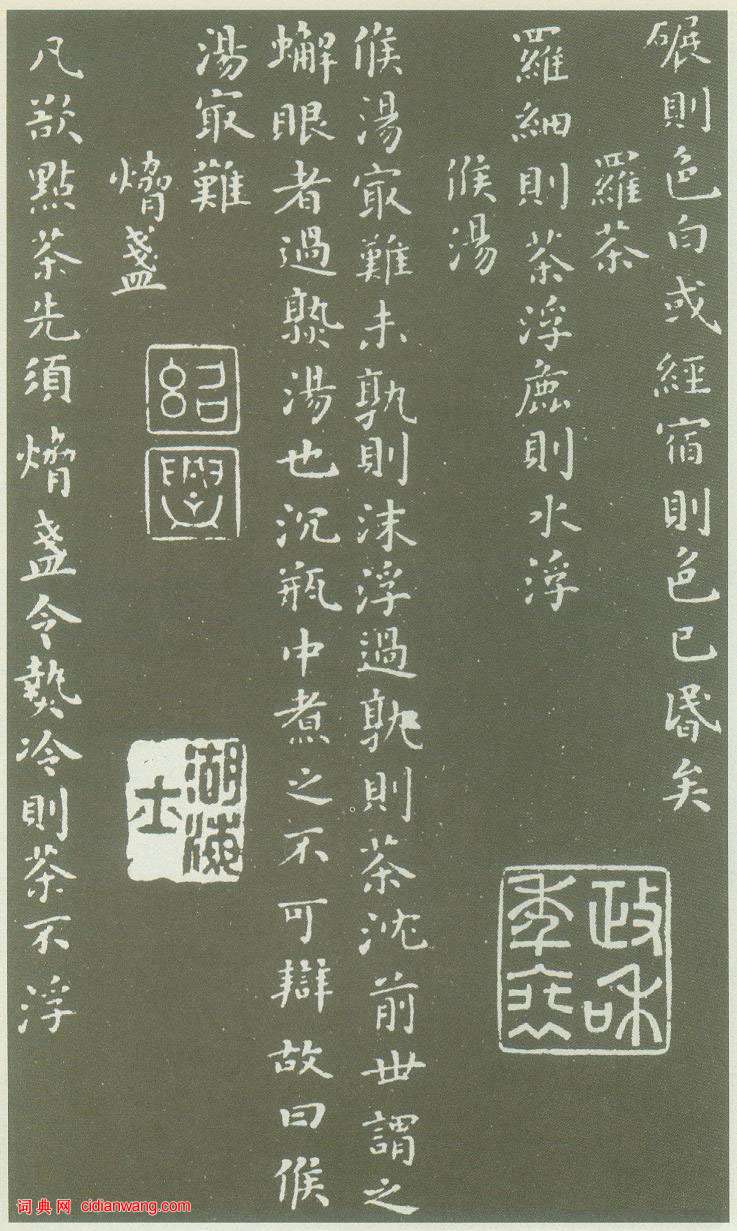 碾則色白或經宿則色已昬矣
羅茶
羅細則茶浮麁則水浮
候湯
候湯冣難未孰則沫浮過孰則茶沈前世謂之
蠏眼者過熟湯也沉瓶中煮之不可辯故曰候
湯冣難
熁盞
凡欲點茶先須熁盞令熱冷則茶不浮
政和
紹興
湖海
士
词典网 cidianwang.com